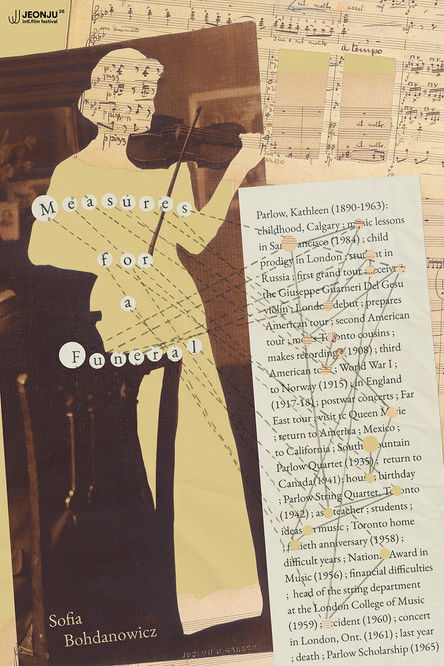 JEONJU 26
intl. film festival
a tempo
Measures
for
a
Funeral
Parlow, Kathleen (1890-1963):
childhood, Calgary ; music lessons
in San Francisco (1984) ; child
prodigy in London ; student in
Russia ; first grand tour ; receives
the Giuseppe Guarneri Del Gesu
violin ; London debut ; prepares
American tour ; second American
tour ; meets Toronto cousins ;
makes recordings (1908) ; third
American tour ; World War I ;
to Norway (1915) ; in England
(1917-18) ; postwar concerts ; Far
East tour ; visit to Queen Marie
; return to America ; Mexico ;
to California ; South Mountain
Parlow Quartet (1935) ; return to
Canada (1941) ; house ; birthday
; Parlow String Quartet, Toronto
(1942) ; as teacher ; students ;
ideas on music ; Toronto home
; fiftieth anniversary (1958) ;
difficult years ; National Award in
Music (1956) ; financial difficulties
; head of the string department
at the London College of Music
(1959) ; accident (1960) ; concert
in London, Ont. (1961) ; last year
; death ; Parlow Scholarship (1965)
Sofia
Bohdanowicz